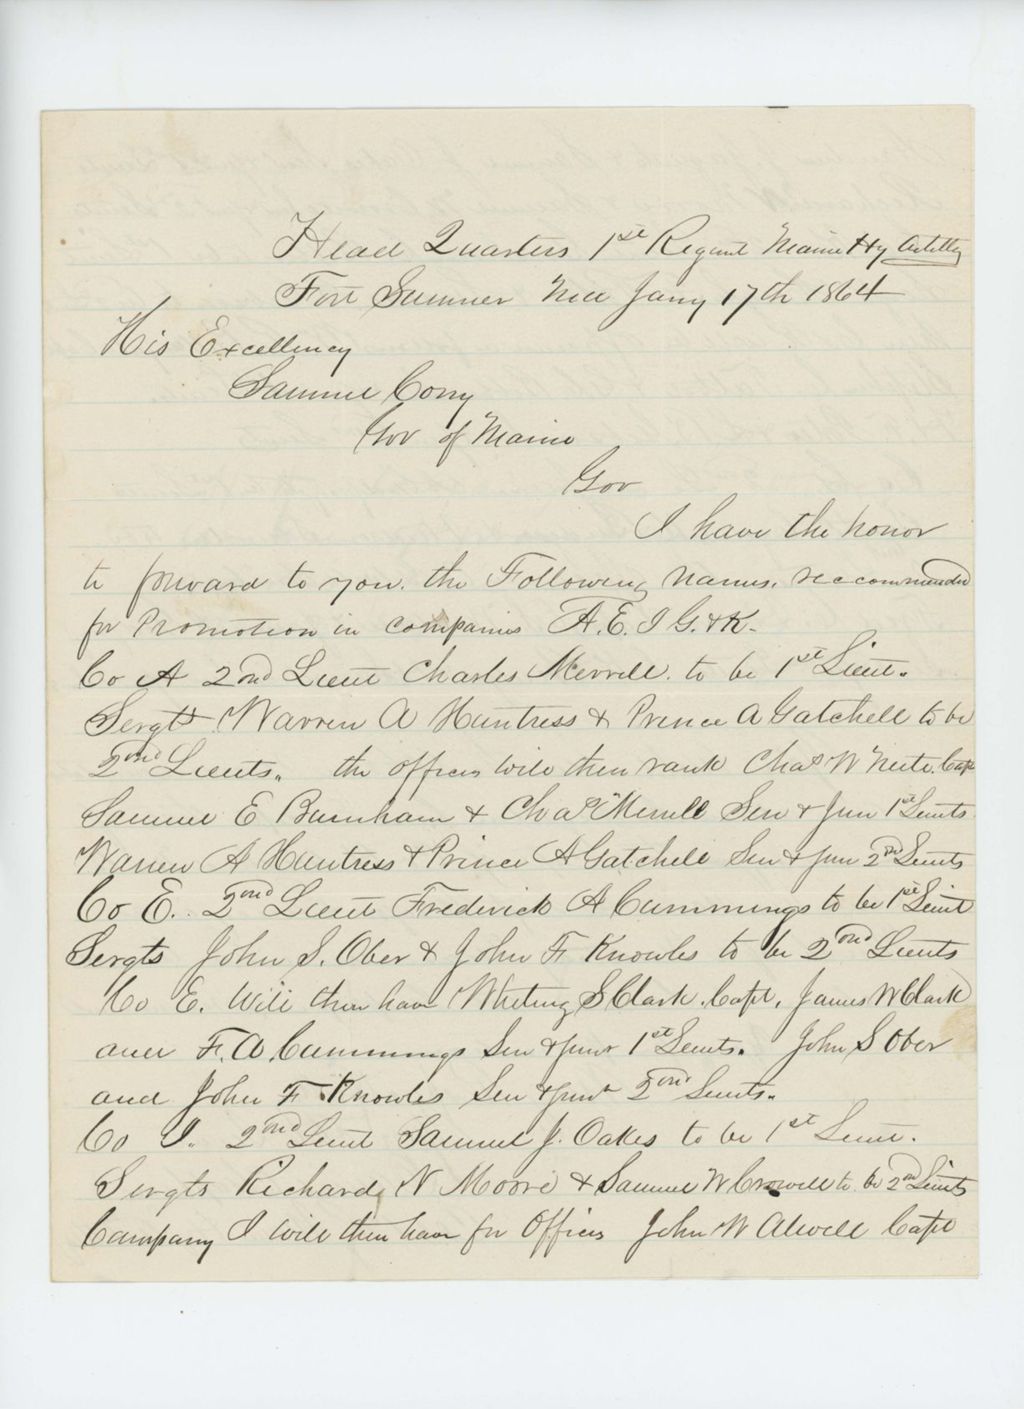 Head Quarters 1st Regmt Maine Hy Artilly
Fort Sumner Md Jany 17th 1864
His Excellency
Samuel Cony
Gov of Maine
Gov
I have the honor
to forward to you. the Following names. reccommended
for Promotion in companies A. E. I G. & K-
Co A 2nd Lieut Charles Merrill. to be 1st Lieut.
Sergts Warren A Huntress & Prince A Gatchell to be
2nd Lieuts. the officers will then rank Chas W Capt
Samuel E Burnham & Chas Merrill Sen & Jun 1st Leuts
Warren A Huntress & Prince A Gatchell Sen & jun 2nd Leuts
Co E. 2nd Lieut Frederick A Cummings to be 1st Leiut
Sergts John S. Ober & John F Knowles to be 2nd Leuts
Co E. Will then have Whiting S Clark. Capt. James W Clark
and F. A Cummings Sen & junr 1st Leuts. John S Ober
and John F Knowles Sen & junr 2nd Leuts.
Co I. 2nd Leut Samuel J. Oakes to be 1st Leut.
Sergts Richard N Moore & Samuel W Crowell to be 2nd Leuts
Company I will then have for Officers John W Atwell Capt